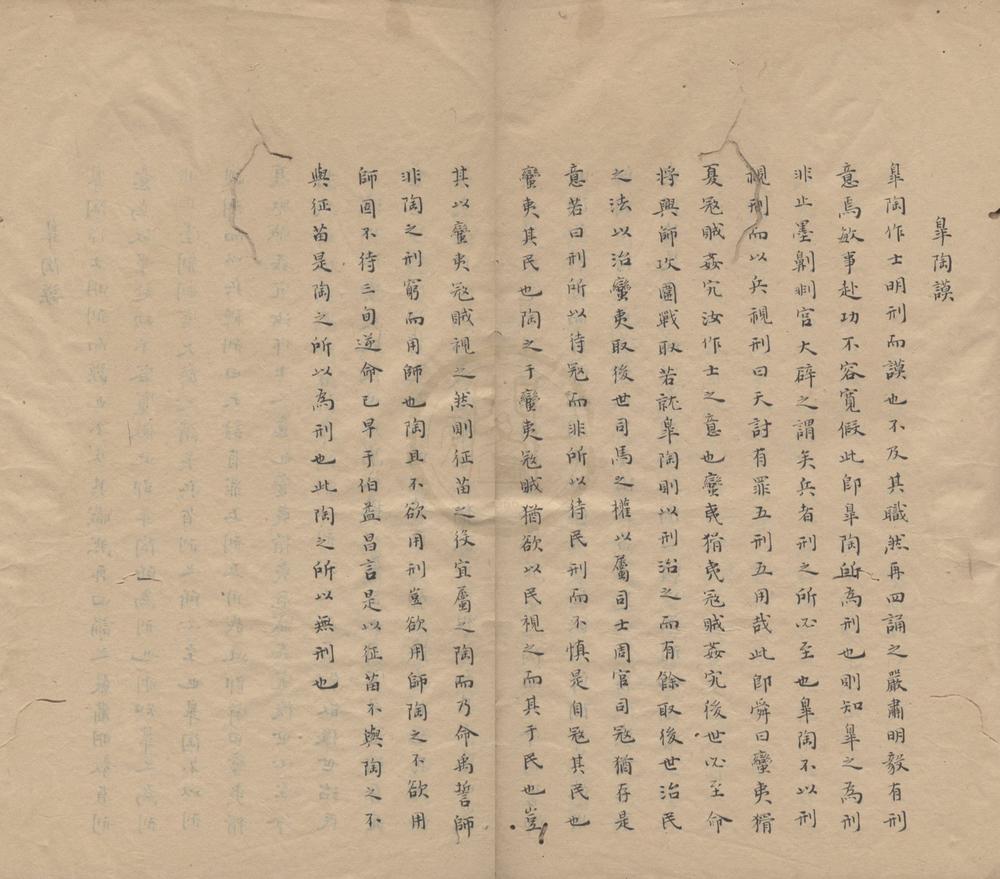 皐陶謨
皐陶作士明刑而謨也不及其職然再四誦之嚴肅明毅有刑
意焉敏事赴功不容寬假此即皐陶所為刑也則知皐之為刑
非止墨劓剕宫大辟之謂矣兵者刑之所必至也皐陶不以刑
視刑而以兵視刑曰天討有罪五刑五用哉此即舜曰蠻夷猾
夏冦賊姦宄汝作士之意也蠻夷猾夷冦賊姦宄後世必至命
將興師攻圍戰取若就皐陶則以刑治之而有餘取後世治民
之法以治蠻夷取後世司馬之權以屬司士周官司冦猶存是
意若曰刑所以待冦而非所以待民刑而不慎是自冦其民也
蠻夷其民也陶之于蠻夷冦賊猶欲以民視之而其于民也豈
其以蠻夷冦賊視之然則征苗之役宜屬之陶而乃命禹誓師
非陶之刑窮而用師也陶且不欲用刑豈欲用師陶之不欲用
師固不待三旬逆命已早于伯益昌言是以征苗不與陶之不
與征苗是陶之所以為刑也此陶之所以無刑也